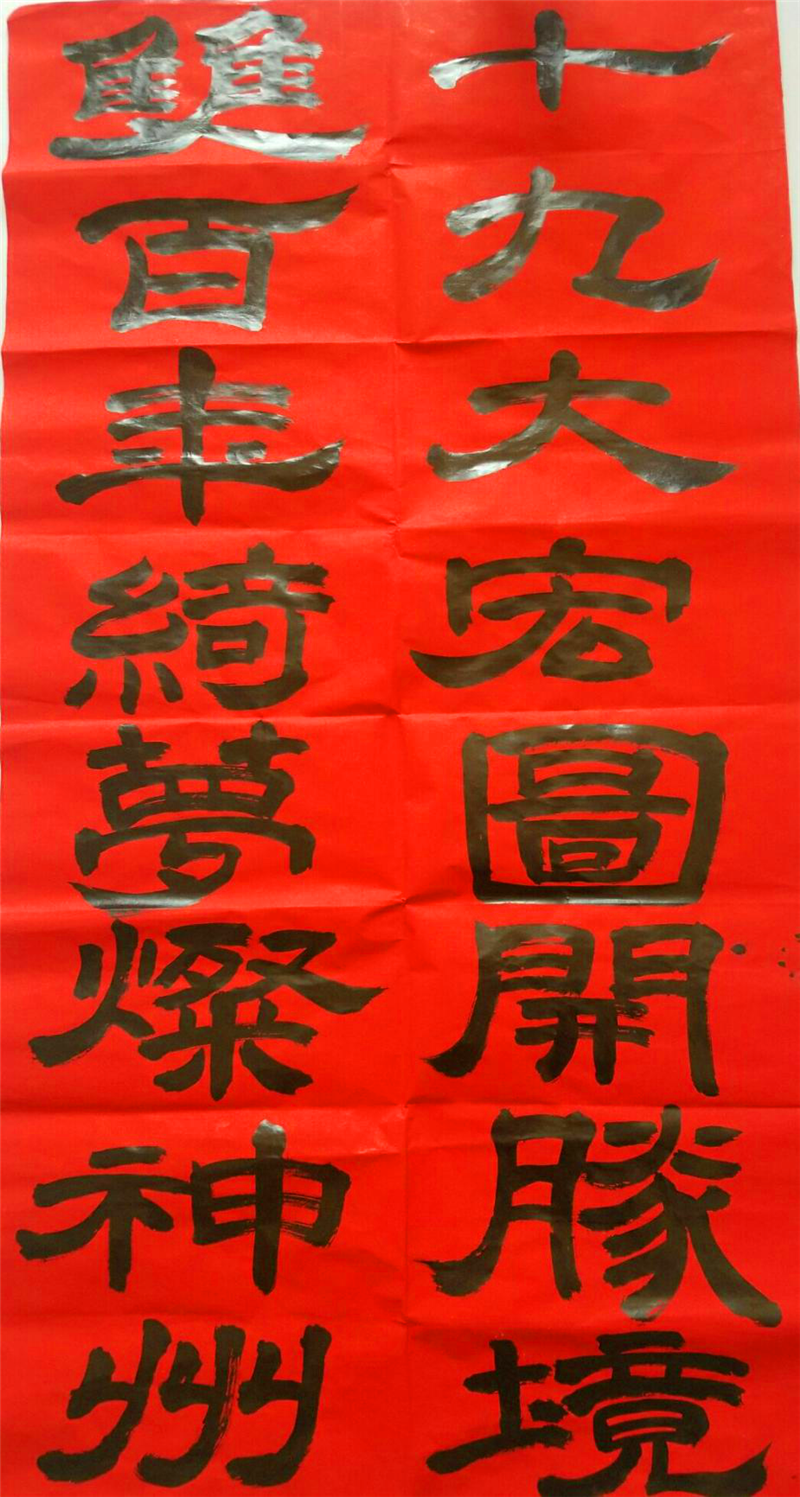 十九大宏圖開勝境
雙百年綺夢燦神州